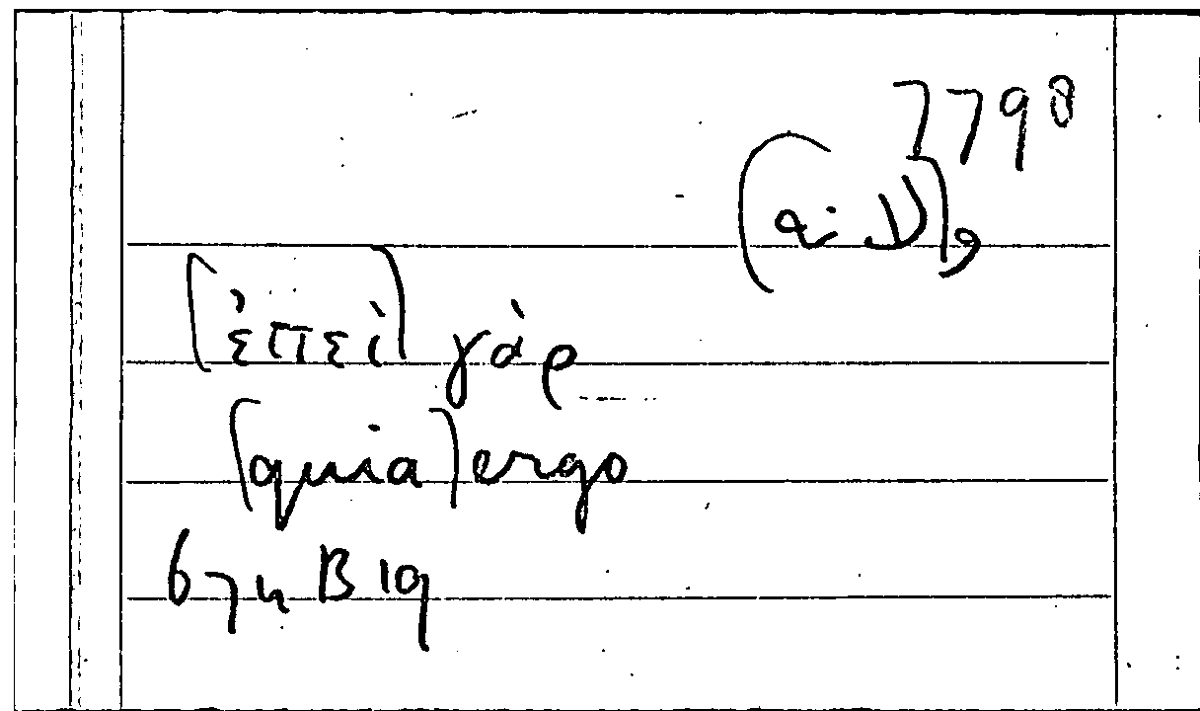 7798
(ἐπεὶ) γάρ
(quia) ergo
674 B 19